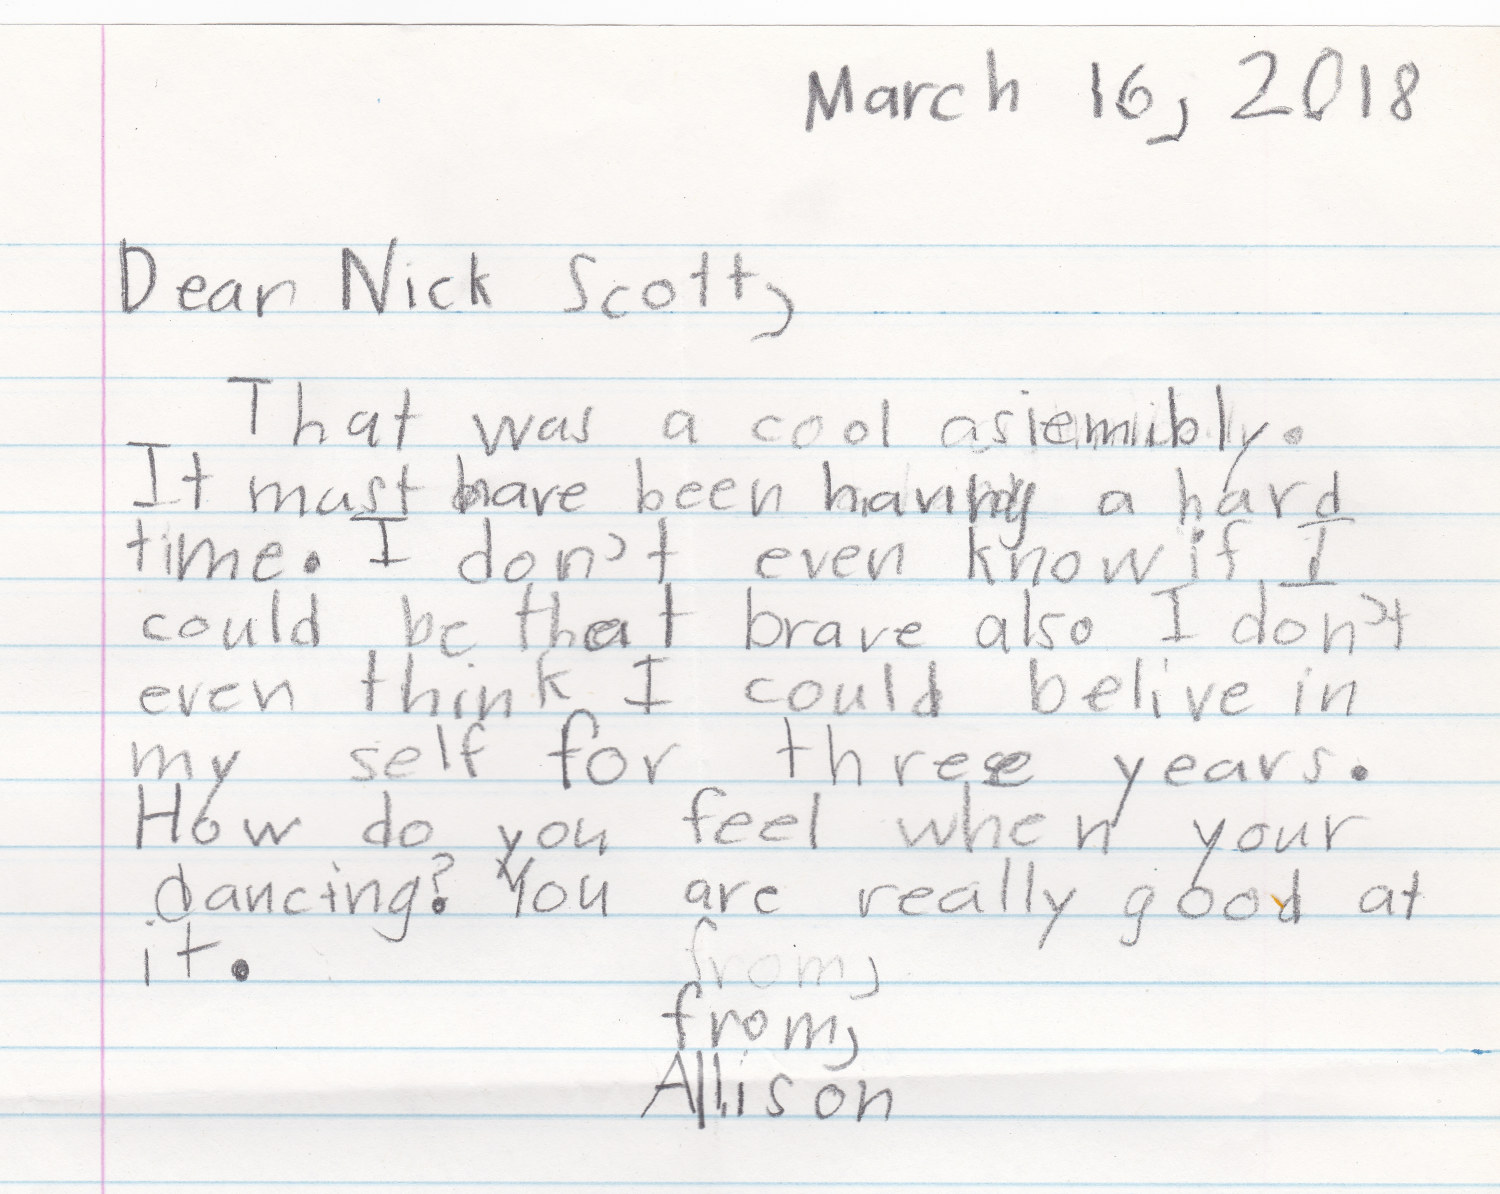 March 16, 2018
Dear Nick Scott,
That was a cool assembly.
It must have been having a hard
time. I don't even know if I
could be that brave also I don't
even think I could belive in
my self for three years.
How do you feel when your
dancing? You are really good at
it.
from,
from,
Allison